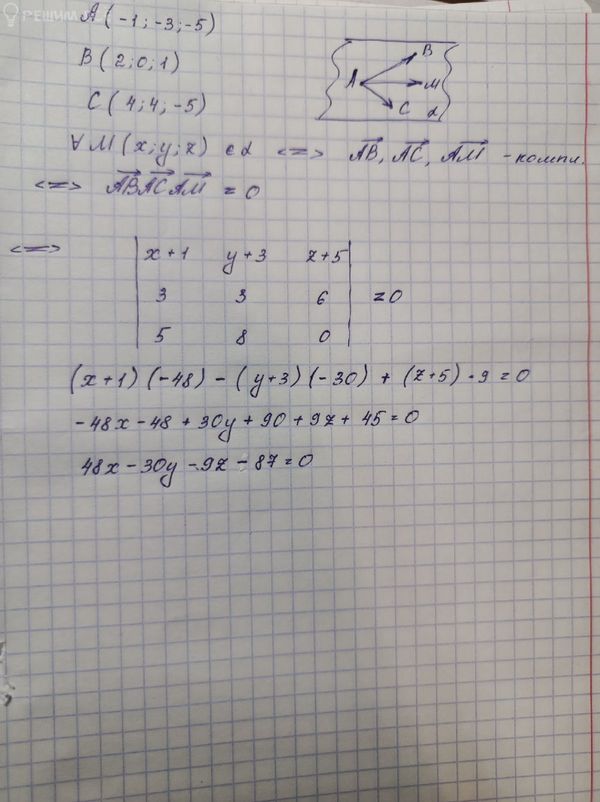 РЕШИМ
A(-1; -3; -5)
B(2; 0; 1)
C(4; 4; -5)
B
A
M
C
α
∀ M(x; y; z) ∈ α <=> AB, AC, AM - компл.
<=> AB AC AM = 0
<=>
| x+1 y+3 z+5 |
| 3 3 6 | = 0
| 5 8 0 |
(x+1)(-48) - (y+3)(-30) + (z+5)·9 = 0
-48x - 48 + 30y + 90 + 9z + 45 = 0
48x - 30y - 9z - 87 = 0